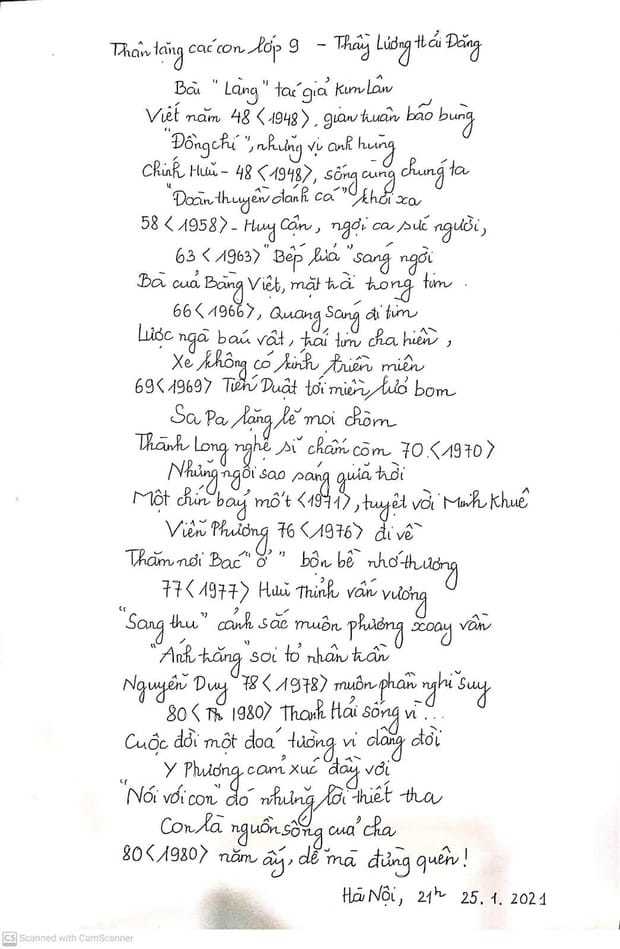 Thân tặng các con lớp 9 - Thầy Lương Hải Đăng
Bài "Làng" tác giả Kim Lân
Viết năm 48 <1948>, gian truân bão bùng
"Đồng chí", những vị anh hùng
Chính Hữu - 48 <1948>, sống cùng chúng ta
"Đoàn thuyền đánh cá" khơi xa
58 <1958> - Huy Cận, ngợi ca sức người,
63 <1963> "Bếp lửa" sáng ngời
Bà của Bằng Việt, mặt trời trong tim.
66 <1966>, Quang Sáng đi tìm
Lược ngà báu vật, trái tim cha hiền,
Xe không có kính triền miên
69 <1969> Tiến Duật tới miền lửa bom
Sa Pa lặng lẽ mọi chòm
Thành Long nghệ sĩ chấm còm 70 <1970>
Những ngôi sao sáng giữa trời
Một chín bảy mốt <1971>, tuyệt vời Minh Khuê
Viễn Phương 76 <1976> đi về
Thăm nơi Bác "ở" bộn bề nhớ thương
77 <1977> Hữu Thỉnh vấn vương
"Sang thu" cảnh sắc muôn phương xoay vần
"Ánh trăng" soi tỏ nhân trần
Nguyễn Duy 78 <1978> muôn phần nghĩ suy
80 <1980> Thanh Hải sống vì...
Cuộc đời một đoá tường vi dâng đời
Y Phương cảm xúc đầy vơi
"Nói với con" đó những lời thiết tha
Con là nguồn sống của cha
80 <1980> năm ấy, dễ mà đừng quên!
Hà Nội, 21h 25.1.2021
CS Scanned with CamScanner